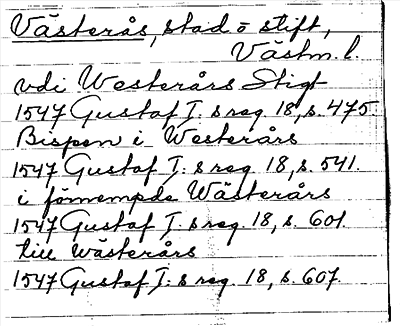 Västerås, stad o stift,
Västm. l.
vdi Westerårs Stigt
1547 Gustaf I: s reg. 18, s. 475.
Bispen i Westerårs
1547 Gustaf I: s reg. 18, s. 541.
i förnempde Wästerårs
1547 Gustaf I: s reg. 18, s. 601.
till wästerårs
1547 Gustaf I: s reg. 18, s. 607.